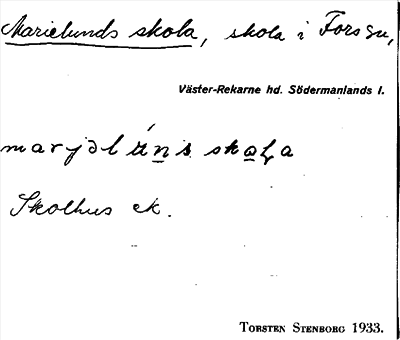 Marielunds skola, skola i Fors sn,
Väster-Rekarne hd. Södermanlands l.
Skolhus ek.
TORSTEN STENBORG 1933.